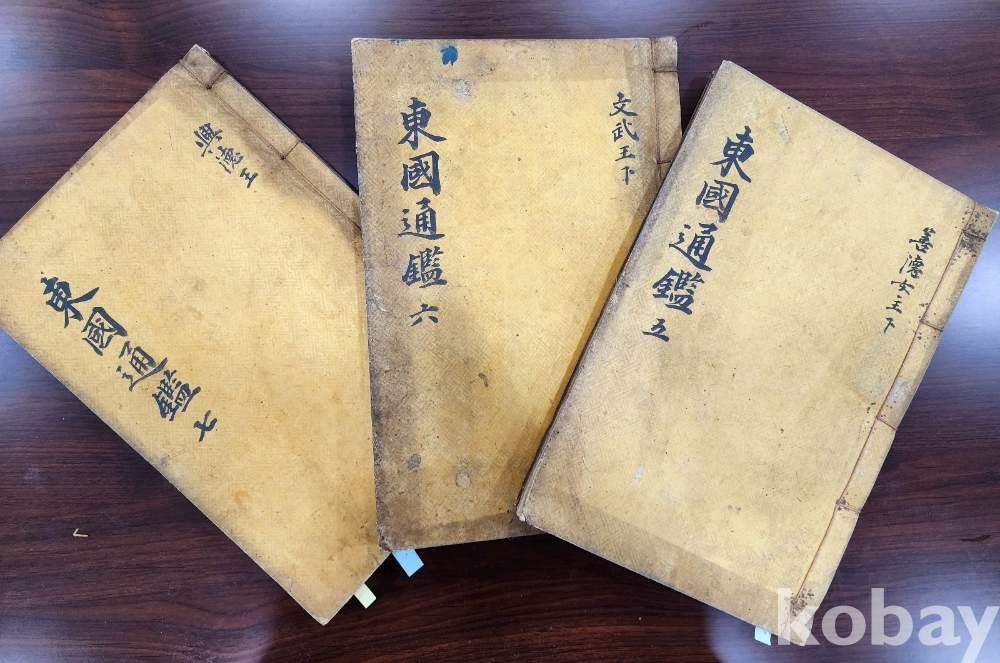 興德王
東國通鑑 七
文武王下
東國通鑑 六
善德女主下
東國通鑑 五
kobay